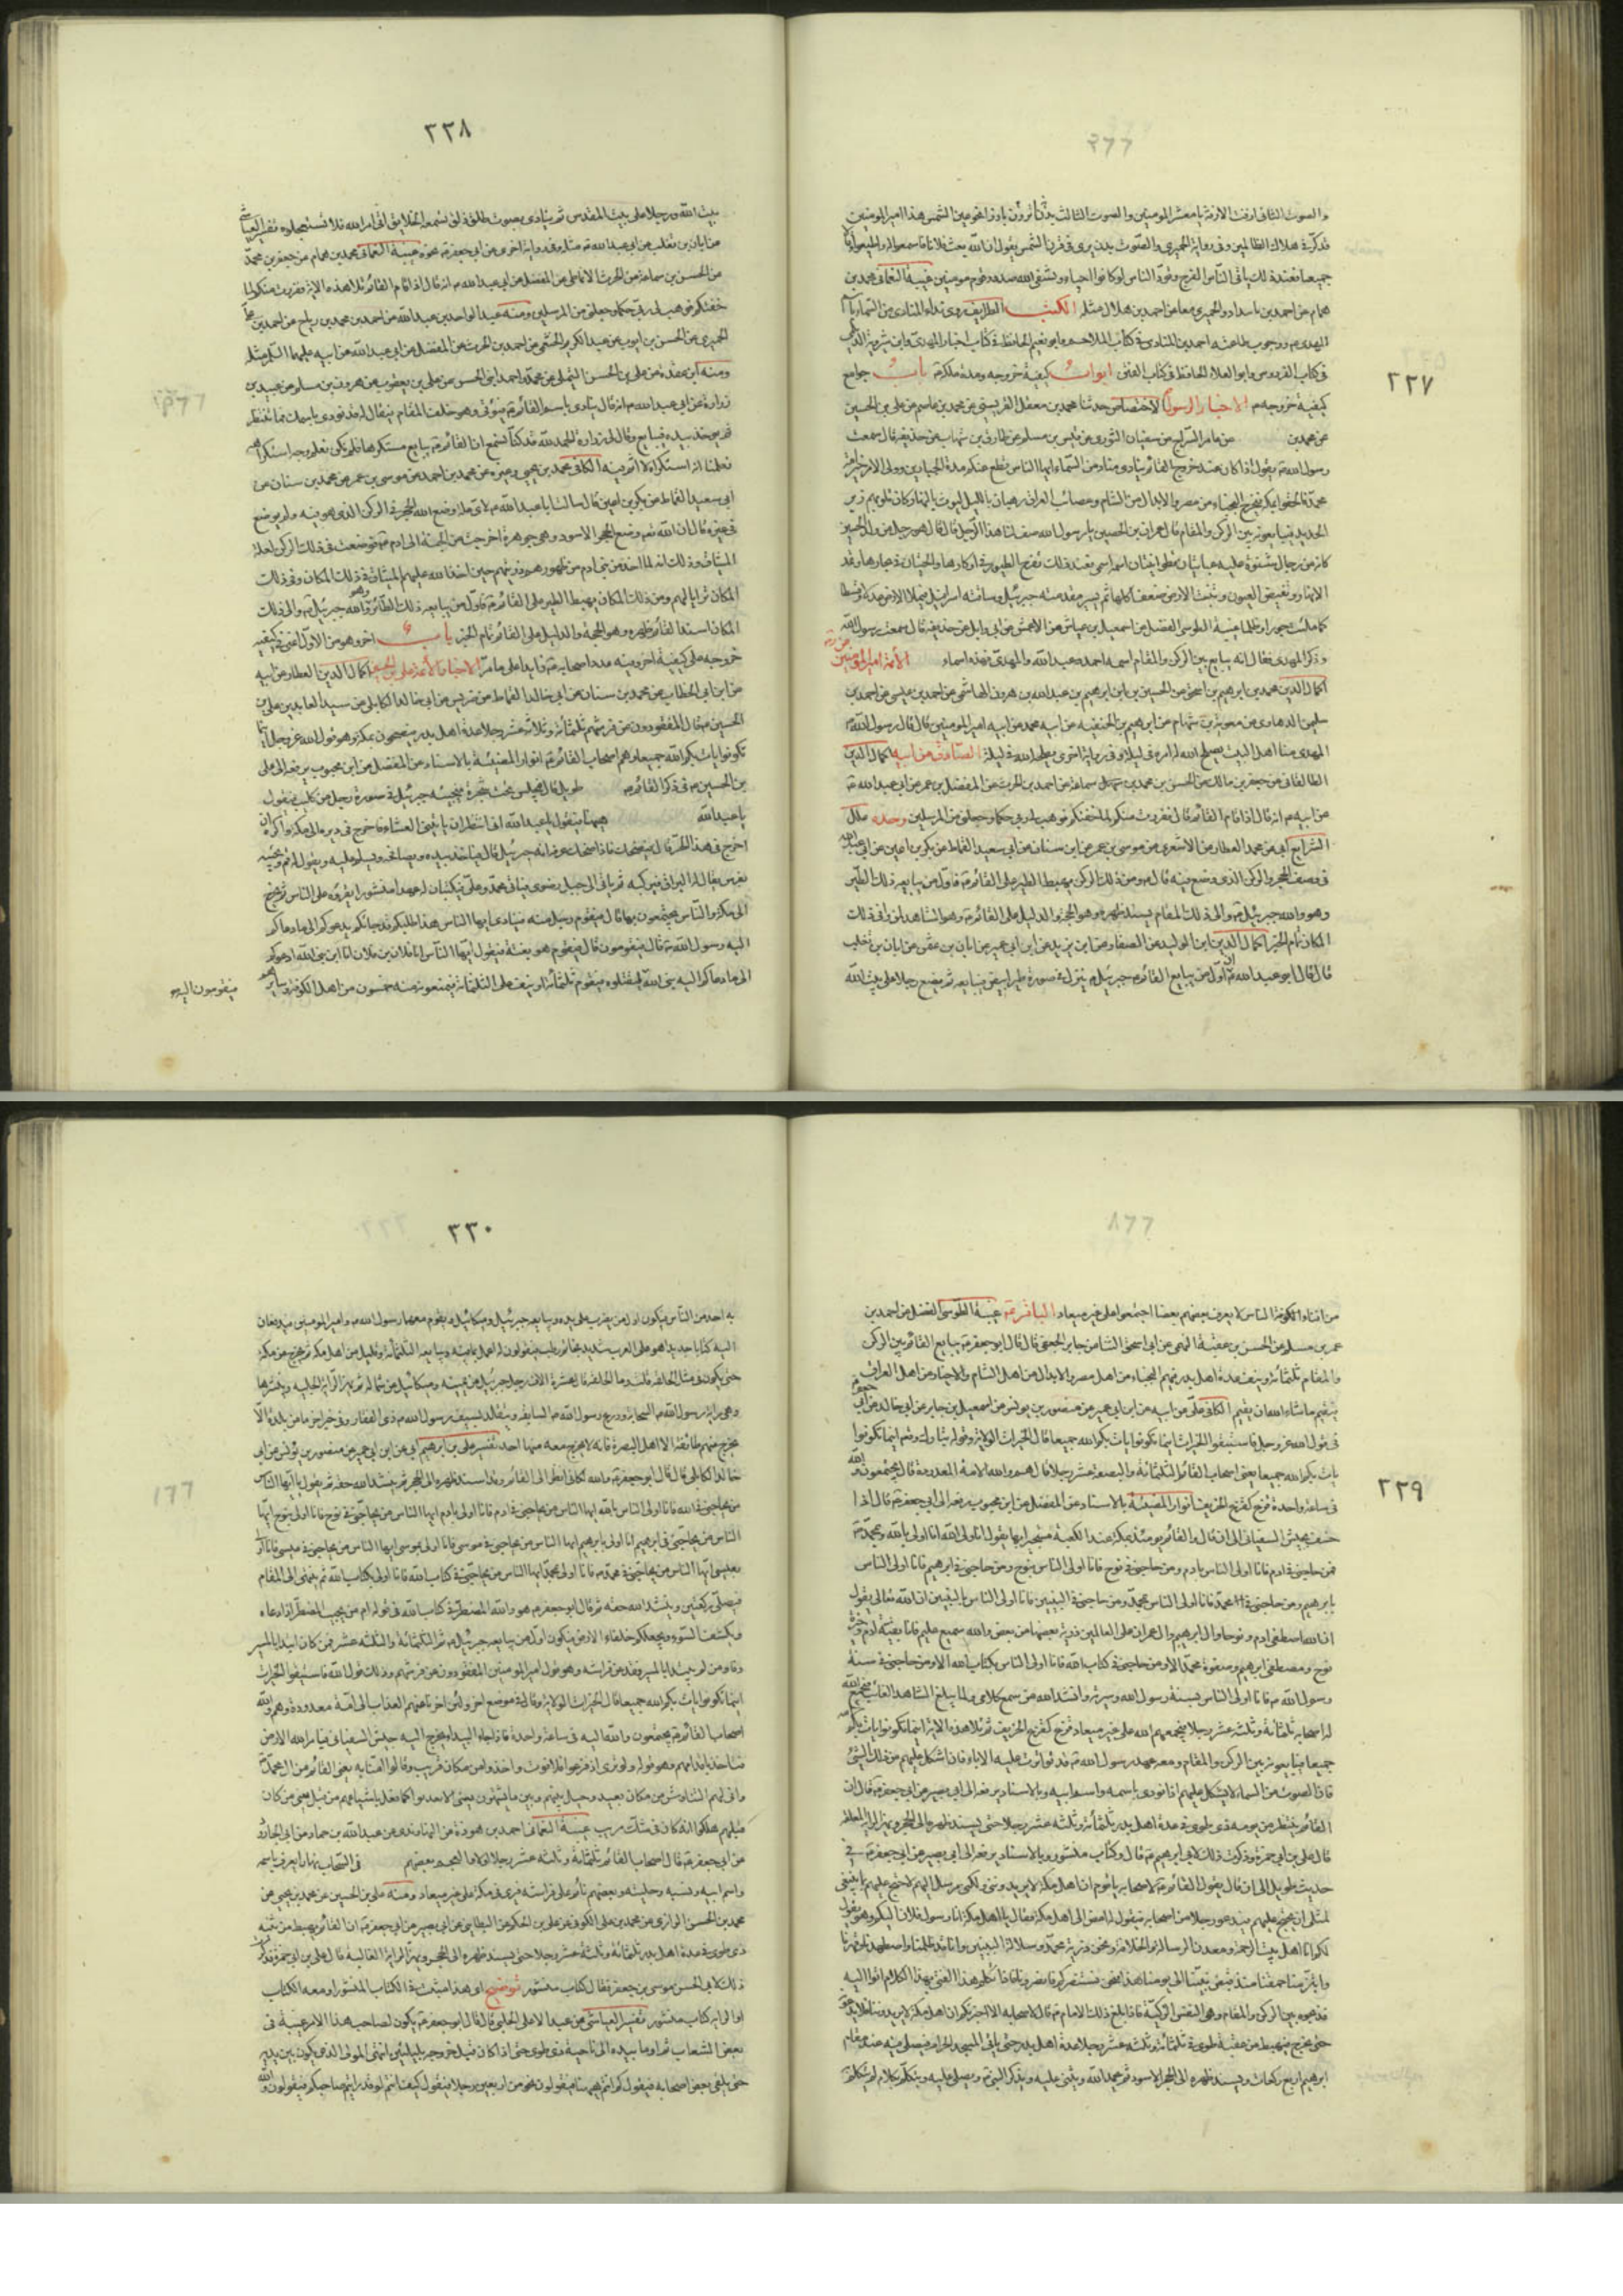 ٢٢٧
والصوت الثاني ازفت الازفة يا معشر المومنين والصوت الثالث
هذا امير المومنين
قد كرّ في هلاك الظالمين وفي رواية الحميري والصوت بدن يرى في قرن الشمس يقول ان الله بعث فلانا فاسمعوا له واطيعوا
جميعا فعند ذلك ياتي الناس الفرج وتودّ الناس لو كانوا احياء ويشفي الله صدور قوم مومنين غيبة النعماني محمد بن
همام عن احمد بن مابنداد والحميري معا عن احمد بن هلال مثله الكتب الطرايف روى نداء المنادي من السماء
المهدي ووجوب طاعته احمد بن المنادي في كتاب الملاحم وابو نعيم الحافظ في كتاب اخبار المهدي وابن شيرويه الديلمي
في كتاب الفردوس وابو العلاء الحافظ في كتاب الفتن ابواب كيفية خروجه ومدة ملكه باب جوامع
كيفية خروجه الاخبار الرسول الاختصاص حدثنا محمد بن معقل القرميسيني عن محمد بن عاصم عن علي بن الحسين
عن محمد بن عن عامر السراج عن سفيان الثوري عن قيس بن مسلم عن طارق بن شهاب عن حذيفة قال سمعت
رسول الله يقول اذا كان عند خروج القائم ينادي مناد من السماء ايها الناس قطع عنكم مدة الجبارين وولى الامر خير امة
محمد فالحقوا بمكة فيخرج النجباء من مصر والابدال من الشام وعصائب العراق رهبان بالليل ليوث بالنهار كان قلوبهم زبر
الحديد فيبايعونه بين الركن والمقام قال عمران بن الحصين يا رسول الله صف لنا هذا الرجل قال هو رجل من ولد الحسين
كانه من رجال شنوة عليه عباءتان قطوانيتان اسمه اسمي فعند ذلك تفرح الطيور في اوكارها والحيتان في بحارها وتمد
الانهار وتفيض العيون وتنبت الارض ضعف اكلها ثم يسير مقدمته جبرئيل وساقته اسرافيل فيملا الارض عدلا وقسطا
كما ملئت جورا وظلما غيبة الطوسي الفضل عن اسمعيل بن عياش عن الاعمش عن ابي وايل عن حذيفة قال سمعت رسول الله
وذكر المهدي فقال انه يبايع بين الركن والمقام اسمه احمد وعبد الله والمهدي فهذه اسماء الائمة امير المومنين
اكمال الدين محمد بن ابراهيم بن اسحق عن الحسين بن ابراهيم بن عبد الله بن هرون الهاشمي عن احمد بن عيسى عن احمد بن
سليمن الدهاوي عن معوية بن هشام عن ابراهيم بن الحنفيه عن ابيه محمد عن ابيه امير المومنين قال قال رسول الله
المهدي منا اهل البيت يصلح الله له امره في ليلة وفي رواية اخرى يصلحه الله في ليلة الصادق عن ابيه اكمال الدين
الطالقاني عن جعفر بن مالك عن الحسن بن محمد بن سماعة عن احمد بن الحرث عن المفضل بن عمر عن ابي عبد الله
عن ابيه انه قال اذا قام القائم قال ففررت منكم لما خفتكم فوهب لي ربي حكما وجعلني من المرسلين وحده علل
الشرايع ابي عن محمد العطار عن الاشعري عن موسى بن عمر عن ابن سنان عن ابي سعيد القماط عن بكير بن اعين عن ابي عبد الله
في وصف الحجر والركن الذي وضع فيه قال ومن ذلك الركن يهبط الطير على القائم فاول من يبايعه ذلك الطير
وهو والله جبرئيل والى ذلك المقام يسند ظهره وهو الحجة والدليل على القائم وهو الشاهد لمن وافى ذلك
المكان تمام الخبر اكمال الدين ابن الوليد عن الصفار عن ابن يزيد عن ابن ابي عمير عن ابان بن عثمن عن ابان بن تغلب
قال قال ابو عبد الله ان اول من يبايع القائم جبرئيل ينزل في صورة طير ابيض فيبايعه ثم يضع رجلا على بيت الله
٢٢٨
بيت الله ورجلا على بيت المقدس ثم ينادي بصوت طلق ذلق تسمعه الخلايق اتى امر الله فلا تستعجلوه تفسير العياشي
عن ابان بن تغلب عن ابي عبد الله مثله وفي رواية اخرى عن ابي جعفر نحوه غيبة النعماني محمد بن همام عن جعفر بن محمد
عن الحسن بن سماعة عن الحرث الانماطي عن المفضل عن ابي عبد الله انه قال اذا قام القائم تلا هذه الاية ففررت منكم لما
خفتكم فوهب لي ربي حكما وجعلني من المرسلين ومنه عبد الواحد بن عبد الله عن احمد بن محمد بن رياح عن احمد بن علي
الحميري عن الحسن بن ايوب عن عبد الكريم الخثعمي عن احمد بن الحرث عن المفضل عن ابي عبد الله عن ابيه عليهما السلام مثله
ومنه ابن عقدة عن علي بن الحسن التيملي عن محمد واحمد ابني الحسن عن علي بن يعقوب عن هرون بن مسلم عن عبيد بن
زرارة عن ابي عبد الله انه قال ينادى باسم القائم فيؤتى وهو خلف المقام فيقال له قد نودي باسمك فما تنتظر
ثم يوخذ بيده فيبايع وقال لي زرارة الحمد لله قد كنا نسمع ان القائم يبايع مستكرها فلم نكن نعلم وجه استكراهه
فعلمنا انه استكراه لا اثم فيه الكافي محمد بن يحيى وغيره عن محمد بن احمد عن موسى بن عمر عن محمد بن سنان عن
ابي سعيد القماط عن بكير بن اعين قال سالت ابا عبد الله لاي علة وضع الله الحجر في الركن الذي هو فيه ولم يوضع
في غيره قال ان الله تعالى وضع الحجر الاسود وهي جوهرة اخرجت من الجنة الى ادم فوضعت في ذلك الركن لعلة
الميثاق وذلك انه لما اخذ من بني ادم من ظهورهم ذريتهم حين اخذ الله عليهم الميثاق في ذلك المكان وفي ذلك
المكان ترايا لهم ومن ذلك المكان يهبط الطير على القائم فاول من يبايعه ذلك الطائر وهو والله جبرئيل والى ذلك
المكان يسند القائم ظهره وهو الحجة والدليل على القائم تمام الخبر باب اخر وهو من الاول
خروجه على كيفية اخرى
اكمال الدين العطار عن ابيه
عن ابن ابي الخطاب عن محمد بن سنان عن ابي خالد القماط عن ضريس عن ابي خالد الكابلي عن سيد العابدين علي بن
الحسين قال المفقودون عن فرشهم ثلثمائة وثلاثة عشر رجلا عدة اهل بدر فيصبحون بمكة وهو قول الله عز وجل اينما
تكونوا يات بكم الله جميعا وهم اصحاب القائم انوار المضيئة بالاسناد عن المفضل عن ابن محبوب يرفعه الى علي
بن الحسين في ذكر القائم طويل قال فيجلس تحت شجرة فيجيئه جبرئيل في صورة رجل من كلب فيقول
يا عبد الله هيهنا فيقول يا عبد الله اني انتظر ان ياتيني العشاء فاخرج في دبره الى مكة واكره ان
اخرج في هذا الحر قال فيضحك فاذا ضحك عرفه انه جبرئيل قال فياخذ بيده ويصافحه ويسلم عليه ويقول له قم ويجيئه
بفرس يقال له البراق فيركبه ثم ياتي الى جبل رضوى فياتي محمد وعلي فيكتبان له عهدا منشورا يقرؤه على الناس ثم يخرج
الى مكة والناس يجتمعون بها قال فيقوم رجل منه فينادي ايها الناس هذا طلبتكم قد جائكم يدعوكم الى ما دعاكم
اليه رسول الله قال فيقومون قال فيقوم هو بنفسه فيقول ايها الناس انا فلان بن فلان انا ابن نبي الله ادعوكم
الى ما دعاكم اليه نبي الله فيقومون اليه ليقتلوه فيقوم ثلثمائة او ينيف على الثلثمائة فيمنعونه منه خمسون من اهل الكوفة وسايرهم
٢٢٩
من افناء الناس لا يعرف بعضهم بعضا اجتمعوا على غير ميعاد الباقر غيبة الطوسي الفضل عن احمد بن
عمر بن مسلم عن الحسن بن عقبة النهمي عن ابي اسحق البنا عن جابر الجعفي قال قال ابو جعفر يبايع القائم بين الركن
والمقام ثلثمائة ونيف عدة اهل بدر فيهم النجباء من اهل مصر والابدال من اهل الشام والاخيار من اهل العراق
فيقيم ما شاء الله ان يقيم الكافي علي عن ابيه عن ابن ابي عمير عن منصور بن يونس عن اسمعيل بن جابر عن ابي خالد عن ابي جعفر
في قول الله عز وجل فاستبقوا الخيرات اينما تكونوا يات بكم الله جميعا قال الخيرات الولاية وقوله تبارك وتعالى اينما تكونوا
يات بكم الله جميعا يعني اصحاب القائم الثلثمائة والبضعة عشر رجلا قال هم والله الامة المعدودة قال يجتمعون والله
في ساعة واحدة قزع كقزع الخريف انوار المضيئة بالاسناد عن المفضل عن ابن محبوب يرفعه الى ابي جعفر قال اذا
خسف بجيش السفياني الى ان قال والقائم يومئذ بمكة عند الكعبة مستجيرا بها يقول انا ولي الله انا اولى بالله وبمحمد
فمن حاجني في ادم فانا اولى الناس بادم ومن حاجني في نوح فانا اولى الناس بنوح ومن حاجني في ابراهيم فانا اولى الناس
بابراهيم ومن حاجني في محمد فانا اولى الناس بمحمد ومن حاجني في النبيين فانا اولى الناس بالنبيين ان الله تعالى يقول
ان الله اصطفى ادم ونوحا وال ابراهيم وال عمران على العالمين ذرية بعضها من بعض والله سميع عليم فانا بقية ادم وخيرة
نوح ومصطفى ابراهيم وصفوة محمد الا ومن حاجني في كتاب الله فانا اولى الناس بكتاب الله الا ومن حاجني في سنة
رسول الله فانا اولى الناس بسنة رسول الله وسيرته وانشد الله من سمع كلامي لما يبلغ الشاهد الغائب فيجمع الله
له اصحابه ثلثمائة وثلثة عشر رجلا فيجمعهم الله على غير ميعاد قزع كقزع الخريف ثم تلا هذه الاية اينما تكونوا يات بكم الله
جميعا فيبايعونه بين الركن والمقام ومعه عهد رسول الله قد تواترت عليه الاباء فان اشكل عليهم من ذلك الشئ
فان الصوت من السماء لا يشكل عليهم اذا نودي باسمه واسم ابيه وبالاسناد يرفعه الى ابي بصير عن ابي جعفر قال ان
القائم ينتظر من يومه ذي طوى في عدة اهل بدر ثلثمائة وثلثة عشر رجلا حتى يسند ظهره الى الحجر ويهز الراية المغلبة
قال علي بن ابي حمزة ذكرت ذلك لابي ابراهيم قال وكتاب منشور وبالاسناد يرفعه الى ابي بصير عن ابي جعفر في
حديث طويل الى ان قال يقول القائم لاصحابه يا قوم ان اهل مكة لا يريدونني ولكني مرسل اليهم لاحتج عليهم بما ينبغي
لمثلي ان يحتج عليهم فيدعو رجلا من اصحابه فيقول له امض الى اهل مكة فقل يا اهل مكة انا رسول فلان اليكم وهو يقول
لكم انا اهل بيت الرحمة ومعدن الرسالة والخلافة ونحن ذرية محمد وسلالة النبيين وانا قد ظلمنا واضطهدنا وقهرنا
وابتز منا حقنا منذ قبض نبينا الى يومنا هذا فنحن نستنصركم فانصرونا فاذا تكلم هذا الفتى بهذا الكلام اتوا اليه
فذبحوه بين الركن والمقام وهي النفس الزكية فاذا بلغ ذلك الامام قال لاصحابه الا اخبرتكم ان اهل مكة لا يريدوننا
حتى يخرج فيهبط من عقبة طوى في ثلثمائة وثلثة عشر رجلا عدة اهل بدر حتى ياتي المسجد الحرام فيصلي فيه عند مقام
ابراهيم اربع ركعات ويسند ظهره الى الحجر الاسود ثم يحمد الله ويثني عليه ويذكر النبي ويصلي عليه ويتكلم بكلام لم يتكلم
٢٣٠
به احد من الناس فيكون اول من يضرب على يده ويبايعه جبرئيل وميكائيل ويقوم معهما رسول الله وامير المومنين فيدفعان
اليه كتابا جديدا هو على العرب شديد بخاتم رطب فيقولون له اعمل بما فيه ويبايعه الثلثمائة وقليل من اهل مكة ثم يخرج من مكة
حتى يكون في مثل الحلقة قلت وما الحلقة قال عشرة الاف رجل جبرئيل عن يمينه وميكائيل عن شماله ثم يهز الراية الجلية وينشرها
وهي راية رسول الله السحابة ودرع رسول الله السابغة ويتقلد بسيف رسول الله ذي الفقار وفي خبر اخر ما من بلدة الا
يخرج منهم طائفة الا اهل البصرة فانه لا يخرج معه منها احد تفسير علي بن ابراهيم ابي عن ابن ابي عمير عن منصور بن يونس عن ابي
خالد الكابلي قال قال ابو جعفر والله لكاني انظر الى القائم وقد اسند ظهره الى الحجر ثم ينشد الله حقه ثم يقول يا ايها الناس
من يحاجني في الله فانا اولى بالله ايها الناس من يحاجني في ادم فانا اولى بادم ايها الناس من يحاجني في نوح فانا اولى بنوح ايها
الناس من يحاجني في ابراهيم انا اولى بابراهيم ايها الناس من يحاجني في موسى فانا اولى بموسى ايها الناس من يحاجني في عيسى فانا اولى
بعيسى ايها الناس من يحاجني في محمد فانا اولى بمحمد ايها الناس من يحاجني في كتاب الله فانا اولى بكتاب الله ثم ينتهي الى المقام
فيصلي ركعتين وينشد الله حقه ثم قال ابو جعفر هو والله المضطر في كتاب الله في قوله امن يجيب المضطر اذا دعاه
ويكشف السوء ويجعلكم خلفاء الارض فيكون اول من يبايعه جبرئيل ثم الثلثمائة والثلثة عشر فمن كان ابتلى بالمسير
وافاه ومن لم يبتل بالمسير فقد عن فراشه وهو قول امير المومنين المفقودون عن فرشهم وذلك قول الله فاستبقوا الخيرات
اينما تكونوا يات بكم الله جميعا قال الخيرات الولاية وقال في موضع اخر ولئن اخرنا عنهم العذاب الى امة معدودة وهم والله
اصحاب القائم يجتمعون والله اليه في ساعة واحدة فاذا جاء الى البيداء يخرج اليه جيش السفياني فيامر الله الارض
فتاخذ باقدامهم وهو قوله ولو ترى اذ فزعوا فلا فوت واخذوا من مكان قريب وقالوا امنا به يعني القائم من ال محمد
وانى لهم التناوش من مكان بعيد وحيل بينهم وبين ما يشتهون يعني الا يعذبوا كما فعل باشياعهم من قبل يعني من كان
قبلهم هلكوا انهم كانوا في شك مريب غيبة النعماني احمد بن هوذة عن النهاوندي عن عبد الله بن حماد عن ابي الجارود
عن ابي جعفر قال اصحاب القائم ثلثمائة وثلثة عشر رجلا اولاد العجم بعضهم في السحاب نهارا يعرف باسمه
واسم ابيه ونسبه وحليته وبعضهم نائم على فراشه فيرى في مكة على غير ميعاد ومنه علي بن الحسين عن محمد بن يحيى عن
محمد بن الحسن الرازي عن محمد بن علي الكوفي عن علي بن الحكم عن البطايني عن ابي بصير عن ابي جعفر ان القائم يهبط من ثنية
ذي طوى في عدة اهل بدر ثلثمائة وثلثة عشر رجلا حتى يسند ظهره الى الحجر ويهز الراية الغالبة قال علي بن ابي حمزة فذكرت
ذلك لابي الحسن موسى بن جعفر فقال كتاب منشور توضيح اي هذا مثبت في الكتاب المنشور او معه الكتاب
او الراية كتاب منشور تفسير العياشي عن عبد الاعلى الحلبي قال قال ابو جعفر يكون لصاحب هذا الامر غيبة في
بعض الشعاب ثم اوما بيده الى ناحية ذي طوى حتى اذا كان قبل خروجه بليلتين انتهى المولى الذي يكون بين يديه
حتى يلقى بعض اصحابه فيقول كم انتم هيهنا فيقولون نحو من اربعين رجلا فيقول كيف انتم لو قد رايتم صاحبكم فيقولون والله